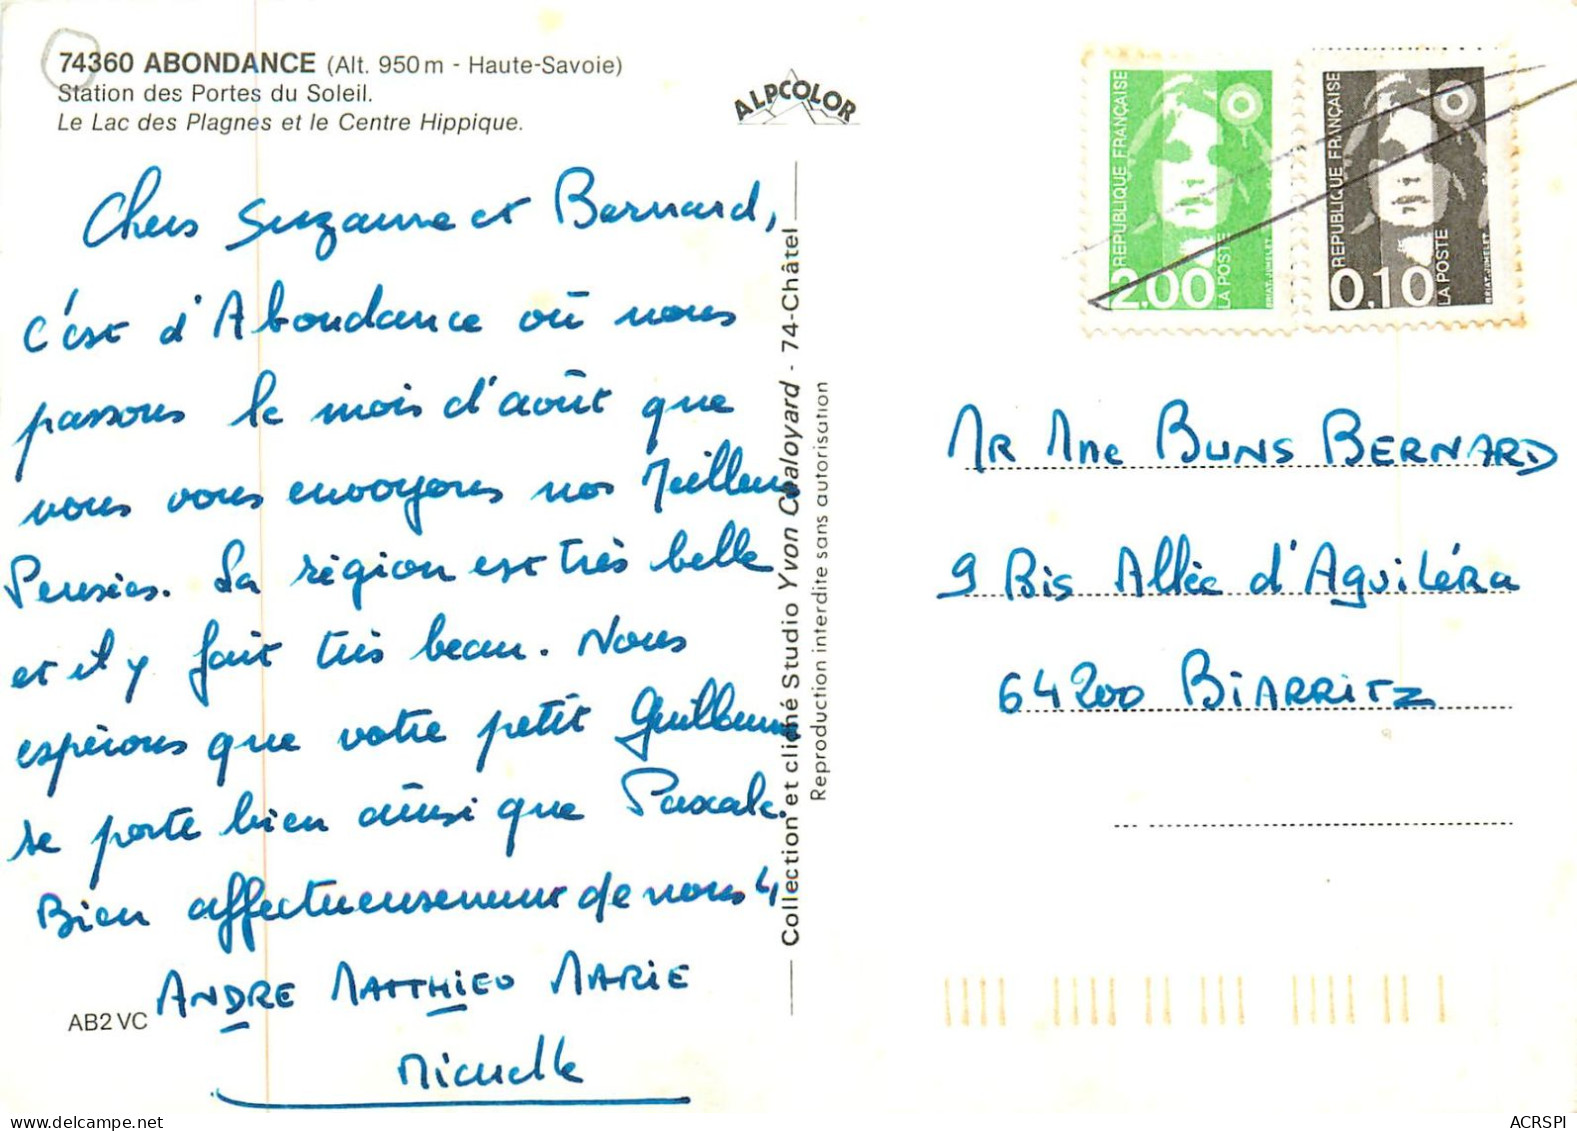 74360 ABONDANCE (Alt. 950 m - Haute-Savoie)
Station des Portes du Soleil.
Le Lac des Plagnes et le Centre Hippique.
ALPCOLOR
Chers Suzanne et Bernard,
c'est d'Abondance où nous
passons le mois d'août que
nous vous envoyons nos Meilleurs
Pensées. La région est très belle
et il y fait très beau. Nous
espérons que votre petit Guillaume
se porte bien ainsi que Pascale.
Bien affectueusement de nous 4
ANDRE MATTHIEU MARIE
Michelle
AB2 VC
Collection et cliché Studio Yvon Caloyard - 74-Châtel
Reproduction interdite sans autorisation
REPUBLIQUE FRANÇAISE
2,00
LA POSTE
BRIAT-JUMELET
REPUBLIQUE FRANÇAISE
0,10
LA POSTE
BRIAT-JUMELET
MR Mme BUNS BERNARD
9 Bis Allée d'Aguiléra
64200 BIARRITZ
ACRSPI
www.delcampe.net